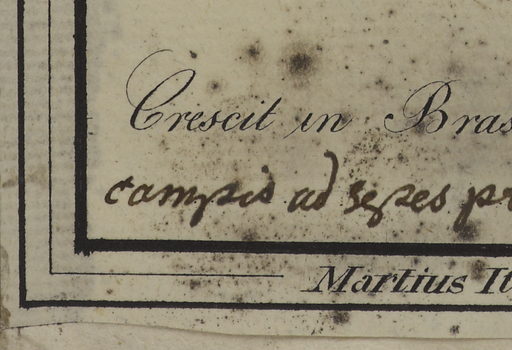 Crescit in Bras
campis ad sepes pr
Martius It